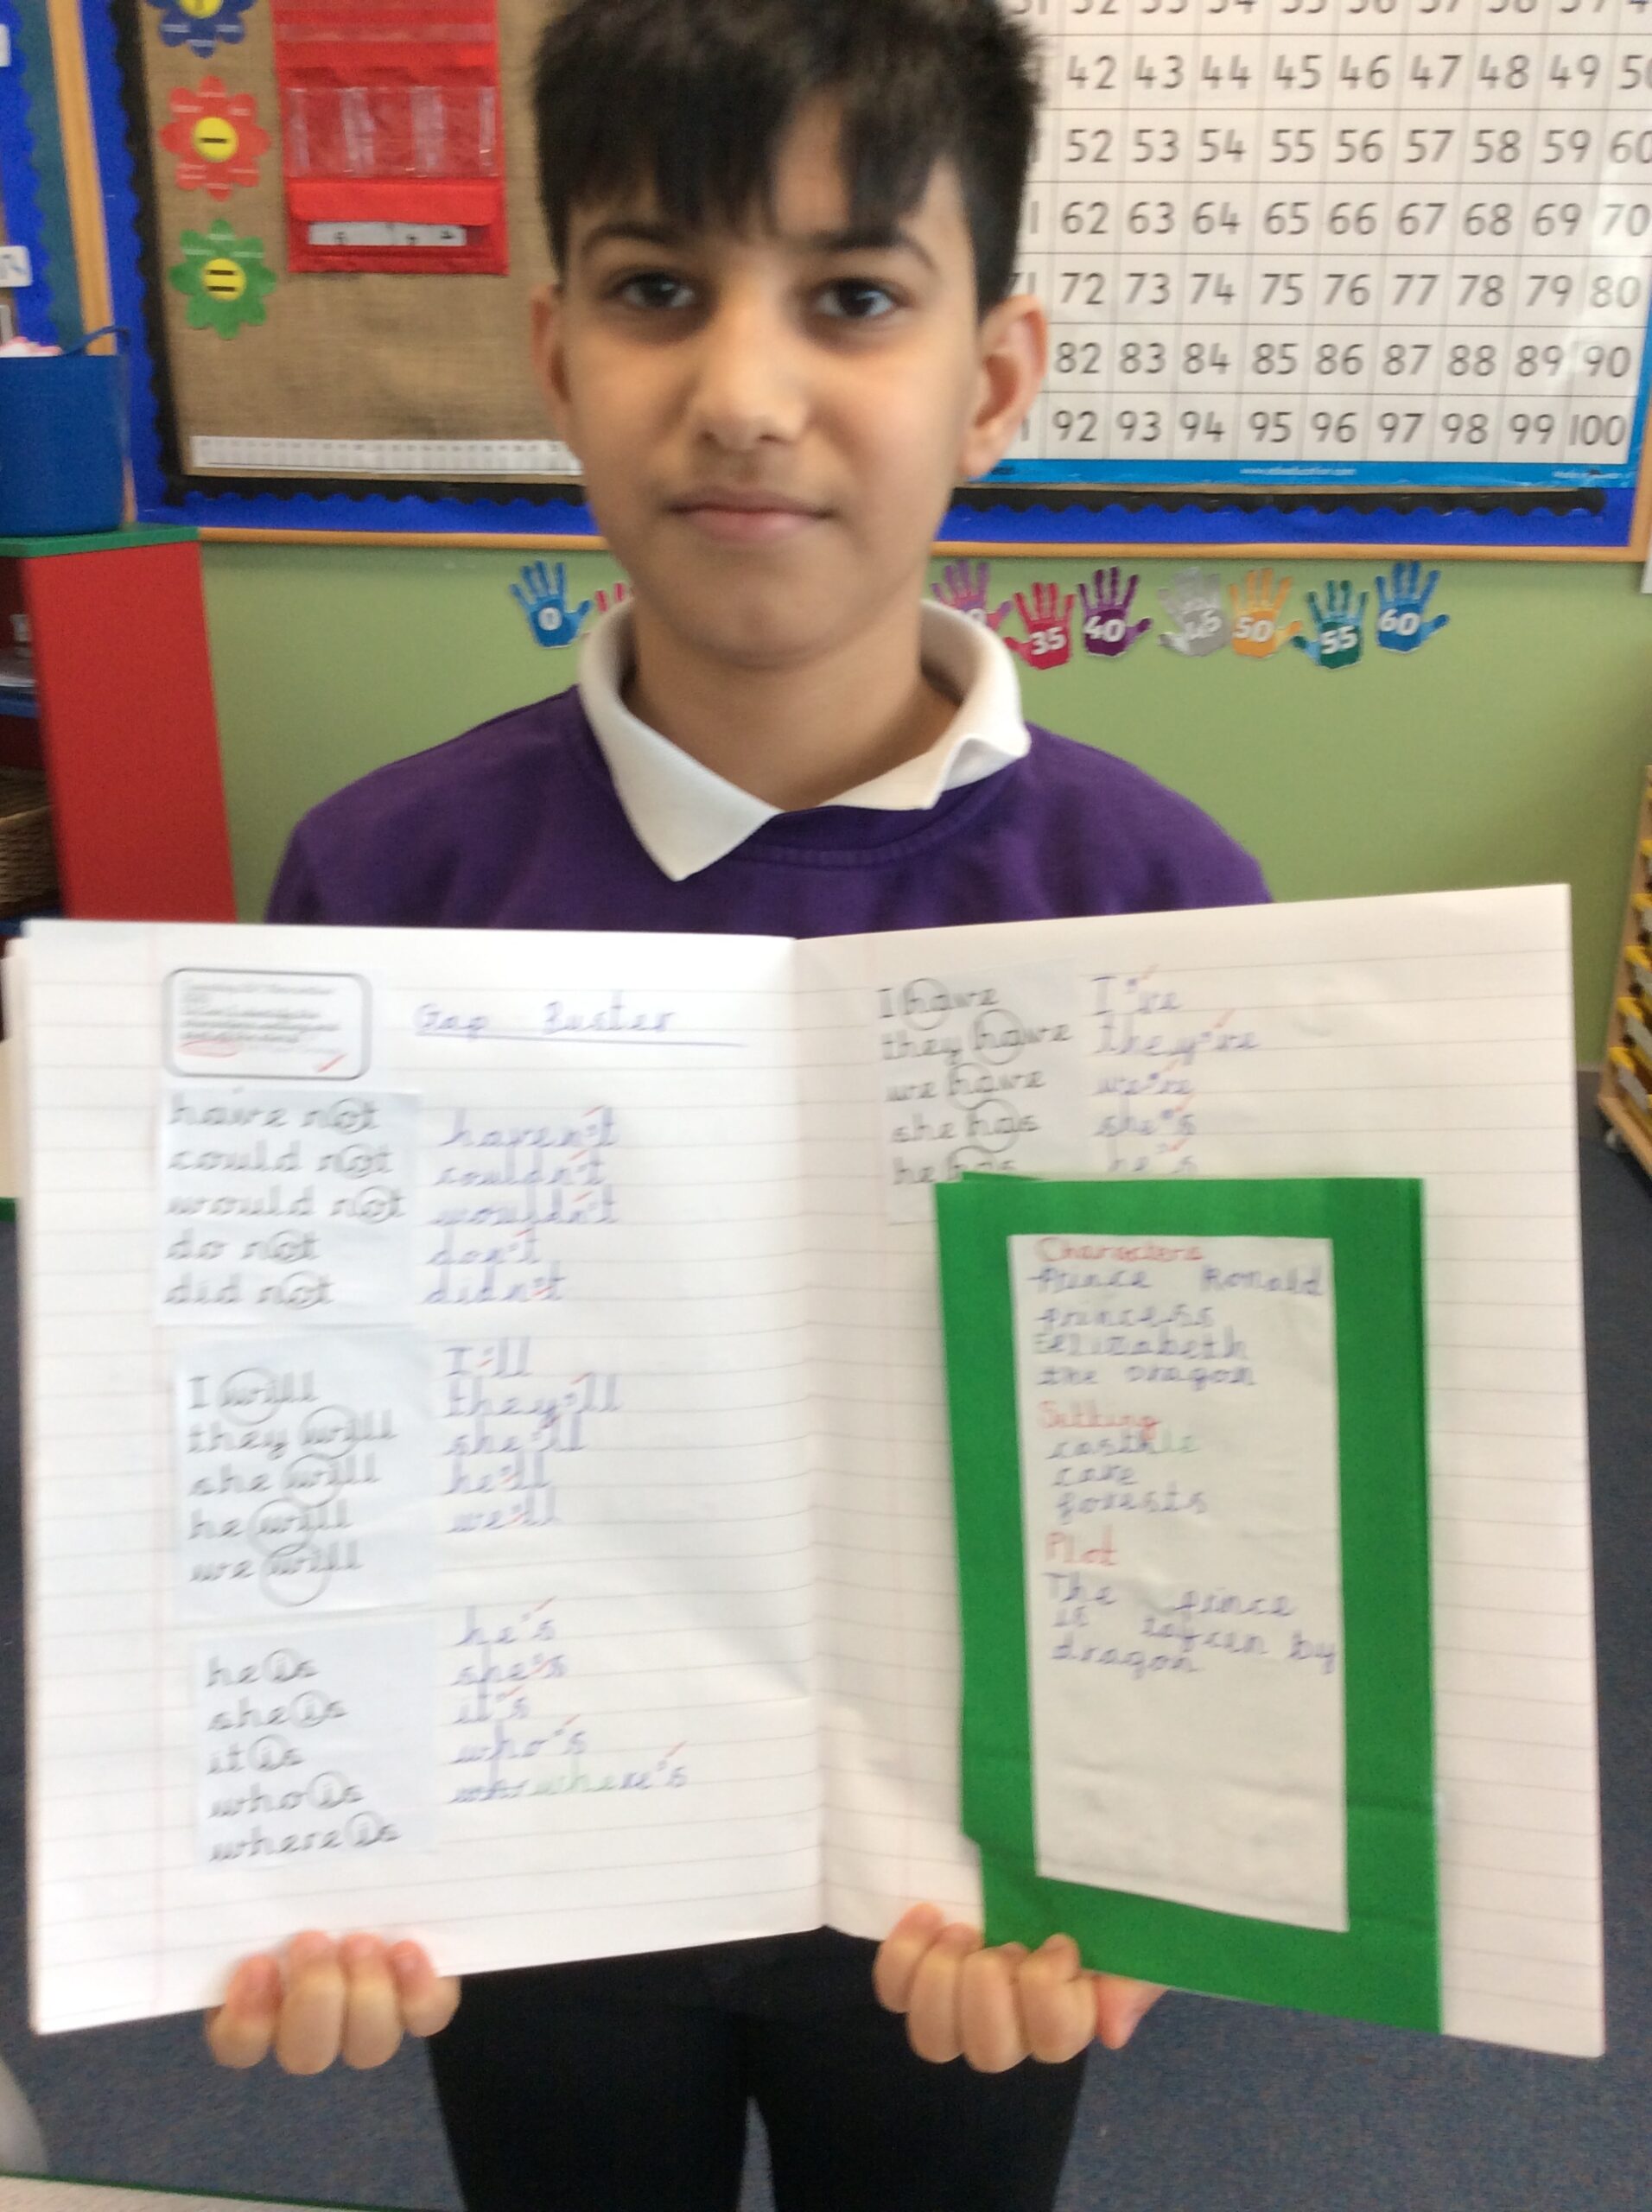 52 53 54 55 56 57 58 59
42 43 44 45 46 47 48 49 50
52 53 54 55 56 57 58 59 60
62 63 64 65 66 67 68 69 70
72 73 74 75 76 77 78 79 80
82 83 84 85 86 87 88 89 90
92 93 94 95 96 97 98 99 100
0 35 40 45 50 55 60
Gap Buster
have not haven't
could not couldn't
would not wouldn't
do not don't
did not didn't
I will I'll
they will they'll
she will she'll
he will he'll
we will we'll
he is he's
she is she's
it is it's
who is who's
where is where's
I have I've
they have they've
we have we've
she has she's
he has he's
Characters
Prince Ronald
princess
Elizabeth
the dragon
Setting
castle
cave
forests
Plot
The prince
is by
dragon